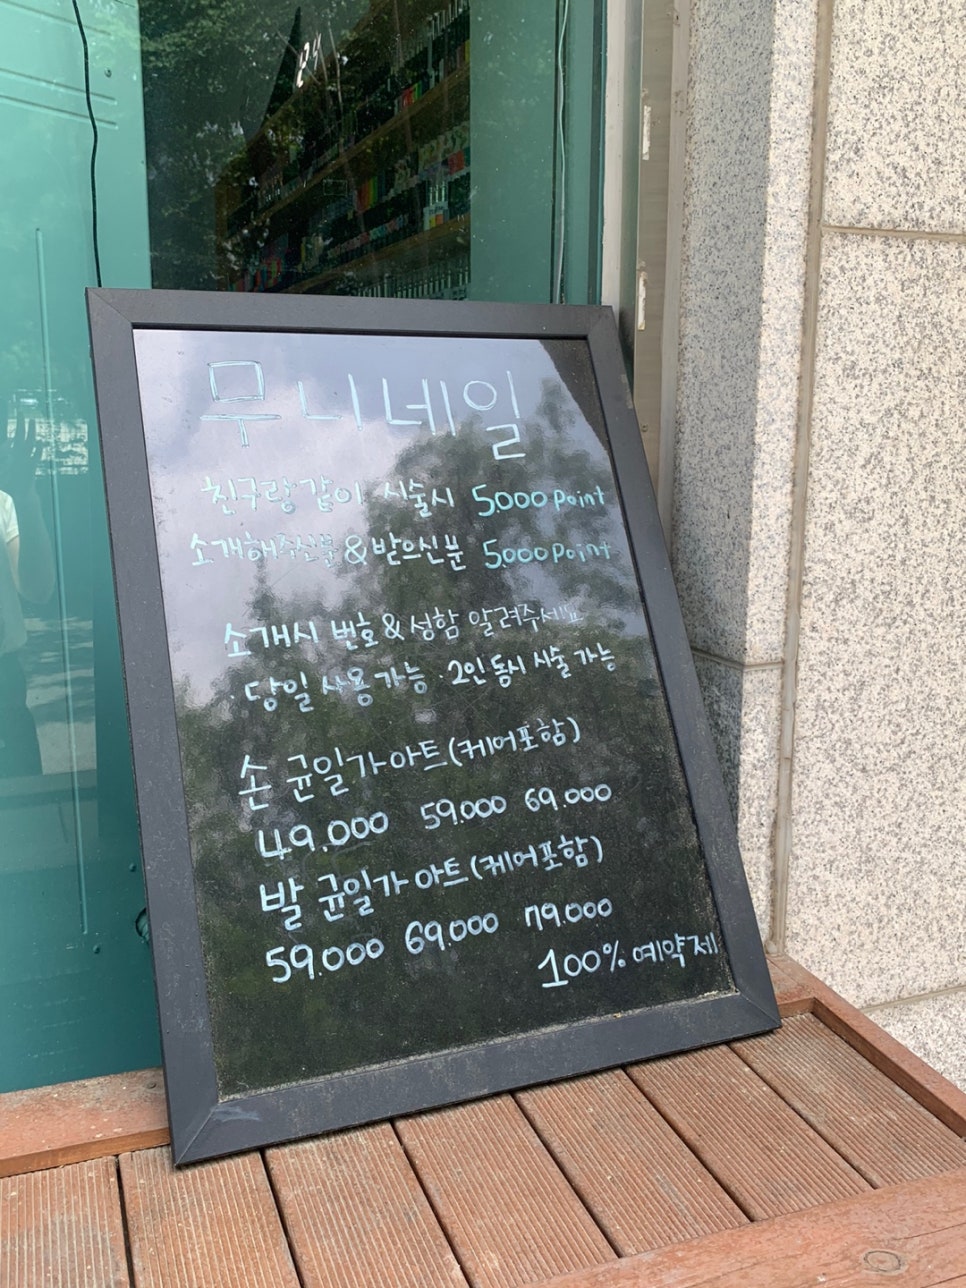 무니네일
친구랑 같이 시술시 5.000 point
소개해주신분 & 받으신분 5.000 point
소개시 번호 & 성함 알려주세요
· 당일 사용가능 · 2인 동시 시술 가능
손 균일가 아트 (케어포함)
49.000 59.000 69.000
발 균일가 아트 (케어포함)
59.000 69.000 79.000
100% 예약제